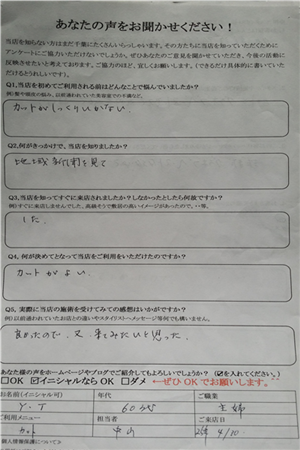 あなたの声をお聞かせください！
当店を知らない方はまだ千葉にたくさんいらっしゃいます。その方たちに当店を知っていただくために
アンケートにご協力いただけないでしょうか。ぜひあなたのご意見をお聞かせていただき、今後の活動に
反映させたいと考えております。ご協力のほど、宜しくお願いします。(できるだけ具体的に書いていた
だけるとうれしいです)。
Q1,当店を初めてご利用される前はどんなことで悩んでいましたか？
カットがしっくりいかない
Q2,何がきっかけで、当店を知りましたか？
地域新聞を見て
Q3,当店を知ってすぐに来店されましたか？しなかったとしたら何故ですか？
した.
Q4, 何が決めてとなって当店をご利用をいただけたのですか？
カットがよい.
Q5, 実際に当店の施術を受けてみての感想はいかがですか？
良かったので、又、来てみたいと思った.
あなた様の声をホームページやブログでご紹介してもよろしいでしょうか？(☑を入れてください。)
□OK ☑イニシャルならOK □ダメ ←ぜひOKでお願いします。
お名前(イニシャル可) 年代 ご職業
Y・T 60才代 主婦
ご利用メニュー 担当者 ご来店日
カット 中山 4/10.
個人情報保護について